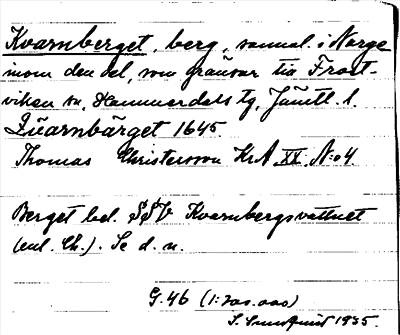 Kvarnberget, berg, sannol. i Norge
inom den del, som gränsar till Frost-
viken sn, Hammerdals tg, Jämtl. l.
Quarnbärget 1645.
Thomas Christersson KrA XX. N:o 4.
Berget bel. SSV Kvarnbergsvattnet
(enl. Ch.). Se d. n.
G. 46 (1:200.000)
S. Sundquist 1935.